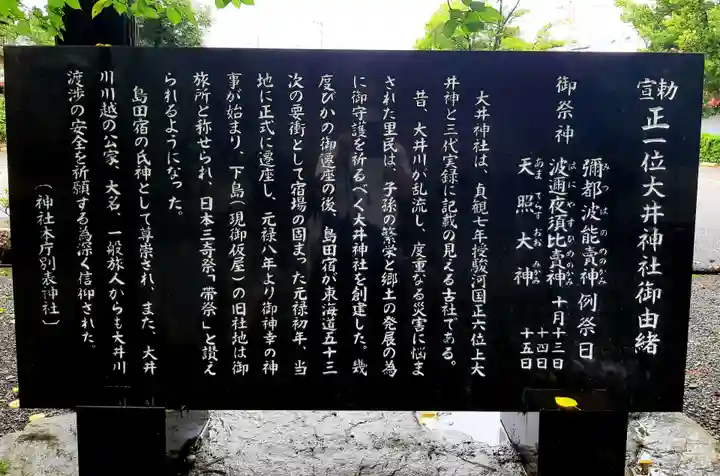 勅宣 正一位大井神社御由緒
御祭神
彌都波能賣神
みつはのめのかみ
波邇夜須比賣神
はにやすひめのかみ
天照大神
あまてらすおおみかみ
例祭日
十月十三日
十四日
十五日
大井神社は、貞観七年授駿河国正六位上大
井神と三代実録に記載の見える古社である。
昔、大井川が乱流し、度重なる災害に悩ま
された里民は、子孫の繁栄と郷土の発展の為
に御守護を祈るべく大井神社を創建した。幾
度びかの御遷座の後、島田宿が東海道五十三
次の要衝として宿場の固まった元禄初年、当
地に正式に遷座し、元禄八年より御神幸の神
事が始まり、下島(現御仮屋)の旧社地は御
旅所と称せられ、日本三奇祭「帯祭」と讃え
られるようになった。
島田宿の氏神として尊崇され、また、大井
川川越の公家、大名、一般旅人からも大井川
渡渉の安全を祈願する為深く信仰された。
(神社本庁別表神社)